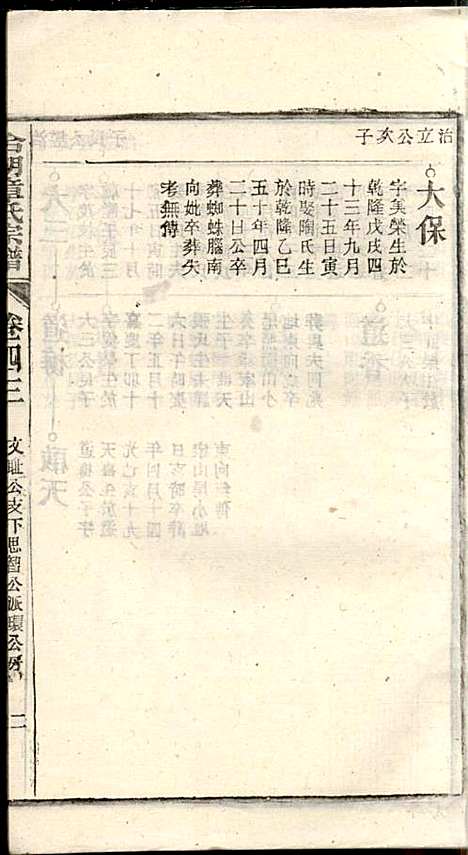 治立公次子
大保
字美榮生於
乾隆戊戌四
十三年九月
二十五日寅
時娶陶氏生
於乾隆乙巳
五十年四月
二十日公卒
葬蜘蛛腦南
向妣卒葬失
考無傳
章氏宗譜
卷四三
文耻公支下思智公派環公房